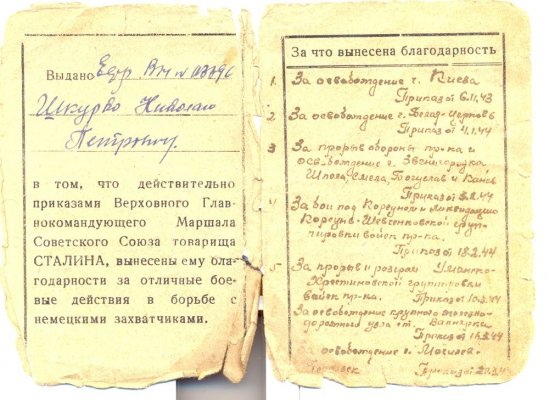 Выдано Едр В/ч № 03896
Шкурко Николаю
Петровичу.
в том, что действительно
приказами Верховного Глав-
нокомандующего Маршала
Советского Союза товарища
СТАЛИНА, вынесены ему бла-
годарности за отличные бое-
вые действия в борьбе с
немецкими захватчиками.
За что вынесена благодарность
1. За освобождение г. Киева
Приказ от 6.11.43
2 За освобождение г. Белая-Церковь
Приказ от 4.1.44
3 За прорыв обороны пр-ка и
освобождение г. Звенигородка
Шпола, Смела, Богуслав и Канев
Приказ от 3.2.44
4 За бои под Корсунем и ликвидацию
Корсунь-Шевченковской груп-
пировки войск пр-ка.
Приказ от 18.2.44
5 За прорыв и разгром Уманско-
Христиновской группировки
войск пр-ка. Приказ от 10.3.44
За освобождение крупного железно-
дорожного узла ст. Вапнярка
Приказ от 16.3.44
За освобождение г. Могилев-
Подольск Приказ от